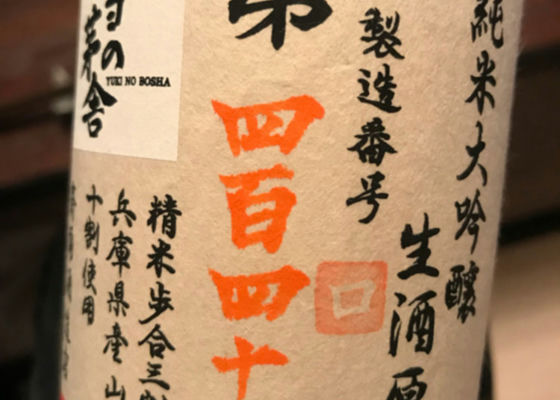 純米大吟醸
生酒原
製造番号
第
四百四十
雪の茅舎
YUKI NO BOSHA
精米歩合三割
兵庫県産山
十割使用